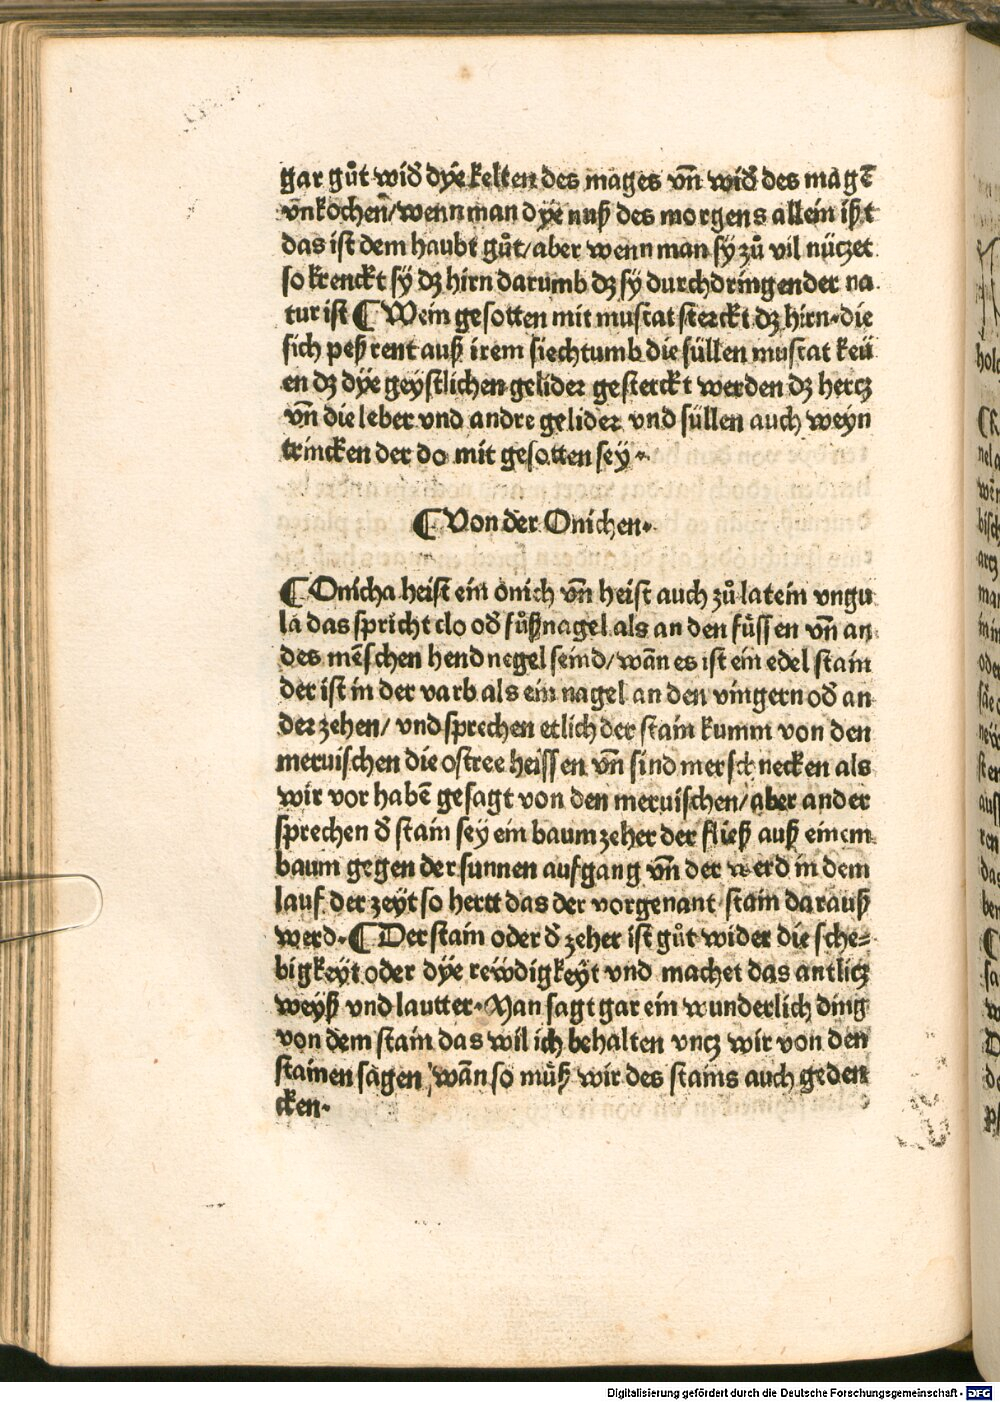 gar gůt wid̄ dÿe kelten des mages vn̄ wid̄ des magē
vnkochen/wenn man dÿe nuß des morgens allein ißt
das ist dem haubt gůt/aber wenn man sÿ zů vil nüczet
so krenckt sÿ dz hirn darumb dz sÿ durchdringender na
tur ist ¶ Wein gesotten mit muscat sterckt dz hirn·die
sich peßrent auß irem siechtumb die süllen muscat keü
en dz dÿe geÿstlichen gelider gesterckt werden dz hercz
vn̄ die leber vnd andre gelider vnd süllen auch weÿn
trincken der do mit gesotten seÿ·
¶ Von der Onichen·
¶ Onicha heist ein onich vn̄ heist auch zů latein vngu
la das spricht clo od̄ fůßnagel als an den füssen vn̄ an
des mēschen hend negel seind/wān es ist ein edel stain
der ist in der varb als ein nagel an den vingern od̄ an
der zehen/ vnd sprechen etlich der stain kumm von den
meruischen die ostree heissen vn̄ sind merschnecken als
wir vor habē gesagt von den meruischen/aber ander
sprechen d̄ stain seÿ ein baum zeher der fließ auß einem
baum gegen der sunnen aufgang vn̄ der werd in dem
lauf der zeÿt so hertt das der vorgenant stain darauß
werd·¶ Der stain oder d̄ zeher ist gůt wider die sche=
bigkeÿt oder dÿe rewdigkeÿt vnd machet das antlicz
weÿß vnd lautter·Man sagt gar ein wunderlich ding
von dem stain das wil ich behalten vncz wir von den
stainen sagen/wān so müß wir des stains auch geden
cken·
Digitalisierung gefördert durch die Deutsche Forschungsgemeinschaft - DFG